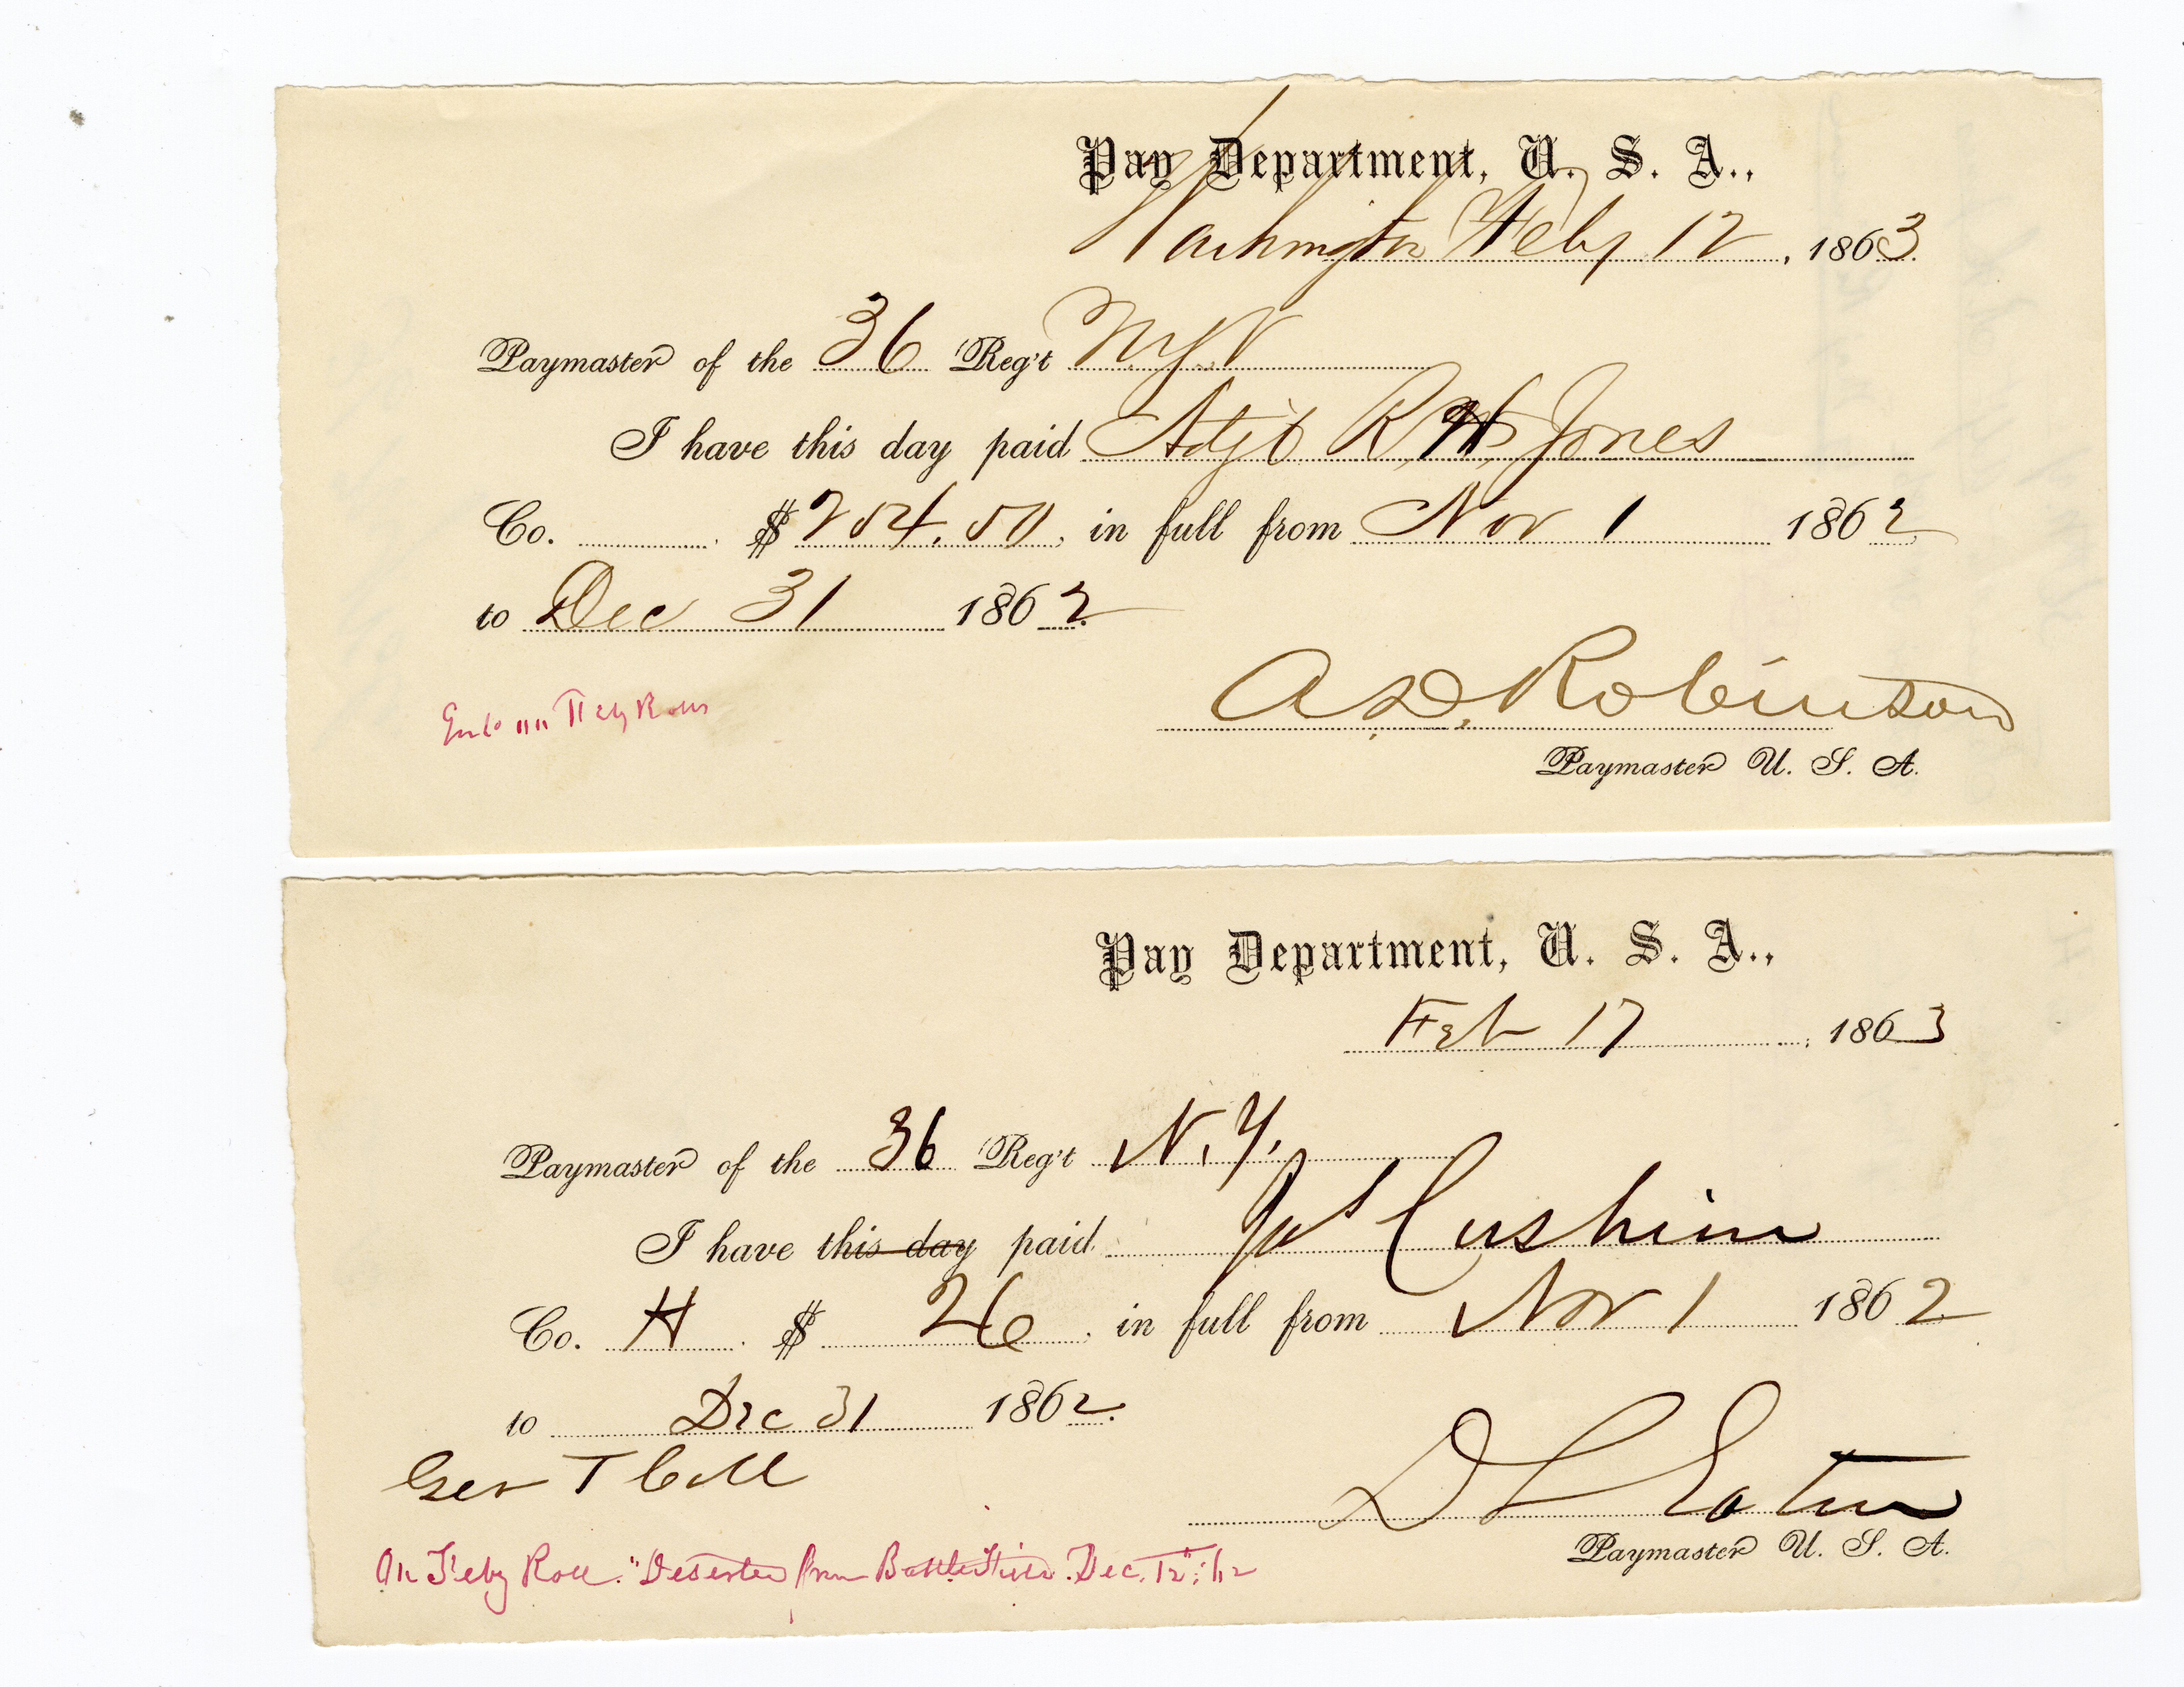 Pay Department, U. S. A.,
Washington Feby 12, 1863.
Paymaster of the 36 Reg't N.Y.V
I have this day paid Adjt R. H. Jones
Co. $ 254.50, in full from Nov 1 1862
to Dec 31 1862.
Feby Rolls
A. D. Robinson
Paymaster U. S. A.
Pay Department, U. S. A.,
Feb 17, 1863
Paymaster of the 36 Reg't N.Y.
I have this day paid Jas Cushin
Co. H. $ 26. in full from Nov 1 1862
to Dec 31 1862.
Geo T
D L Eaton
On Feby Roll. "Deserted from Battlefield. Dec. 12": 62
Paymaster U. S. A.